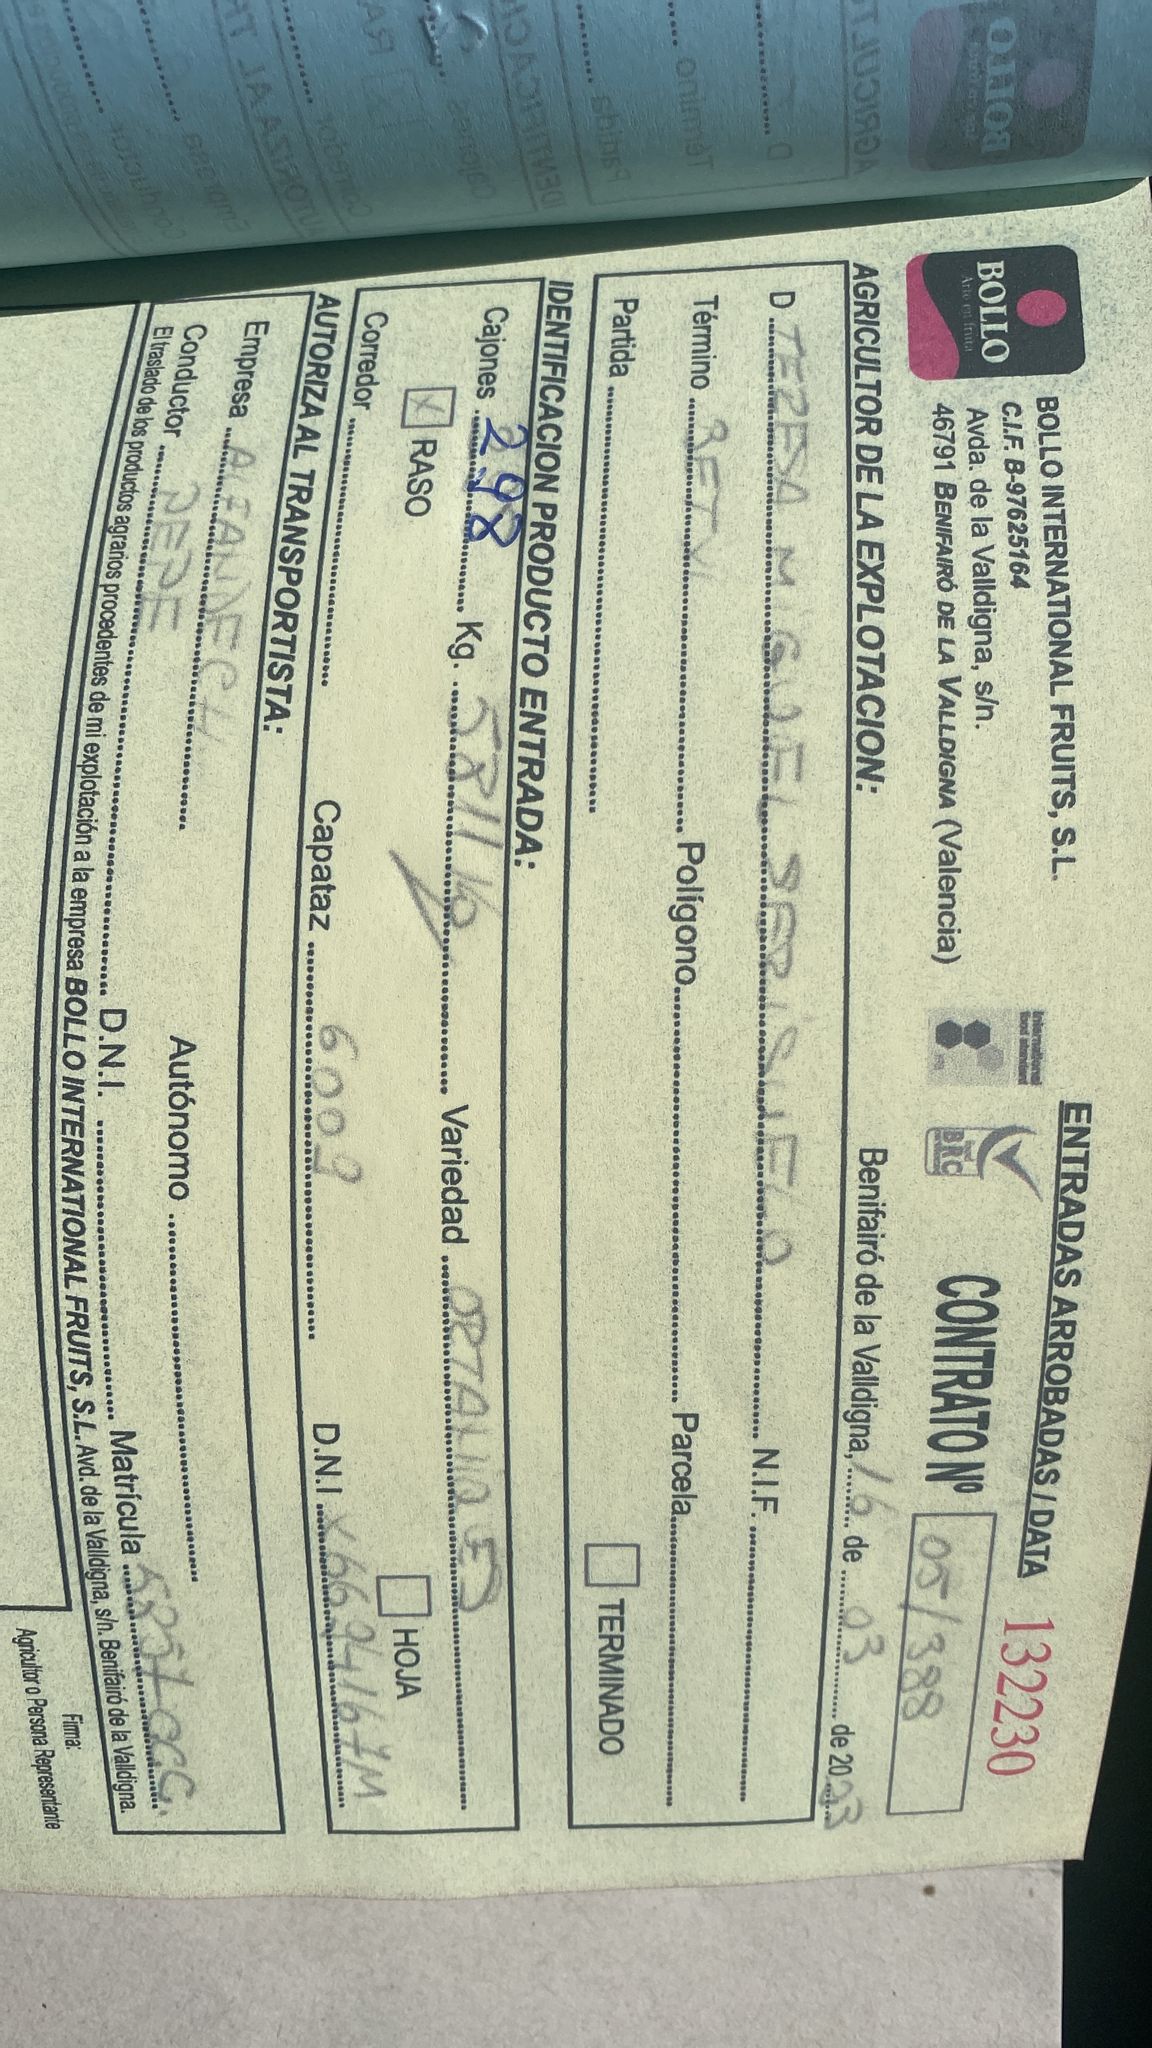 BOLLO
Arte en fruta
BOLLO INTERNATIONAL FRUITS, S.L.
C.I.F. B-97625164
Avda. de la Valldigna, s/n.
46791 BENIFAIRÓ DE LA VALLDIGNA (Valencia)
International
food standard
BRC
ENTRADAS ARROBADAS / DATA 132230
CONTRATO Nº 05/388
Benifairó de la Valldigna, 16 de 03 de 2023
AGRICULTOR DE LA EXPLOTACION:
D TERESA MIGUEL N.I.F.
Término Polígono Parcela
Partida TERMINADO
IDENTIFICACION PRODUCTO ENTRADA:
Cajones 298 Kg. 5811 Kg Variedad ORTANIQUES
X RASO HOJA
Corredor Capataz 6009 D.N.I X6694167M
AUTORIZA AL TRANSPORTISTA:
Empresa ALFANDECH Autónomo
Conductor PEPE D.N.I. Matrícula
El traslado de los productos agrarios procedentes de mi explotación a la empresa BOLLO INTERNATIONAL FRUITS, S.L. Avd. de la Valldigna, s/n. Benifairó de la Valldigna.
Firma:
Agricultor o Persona Representante